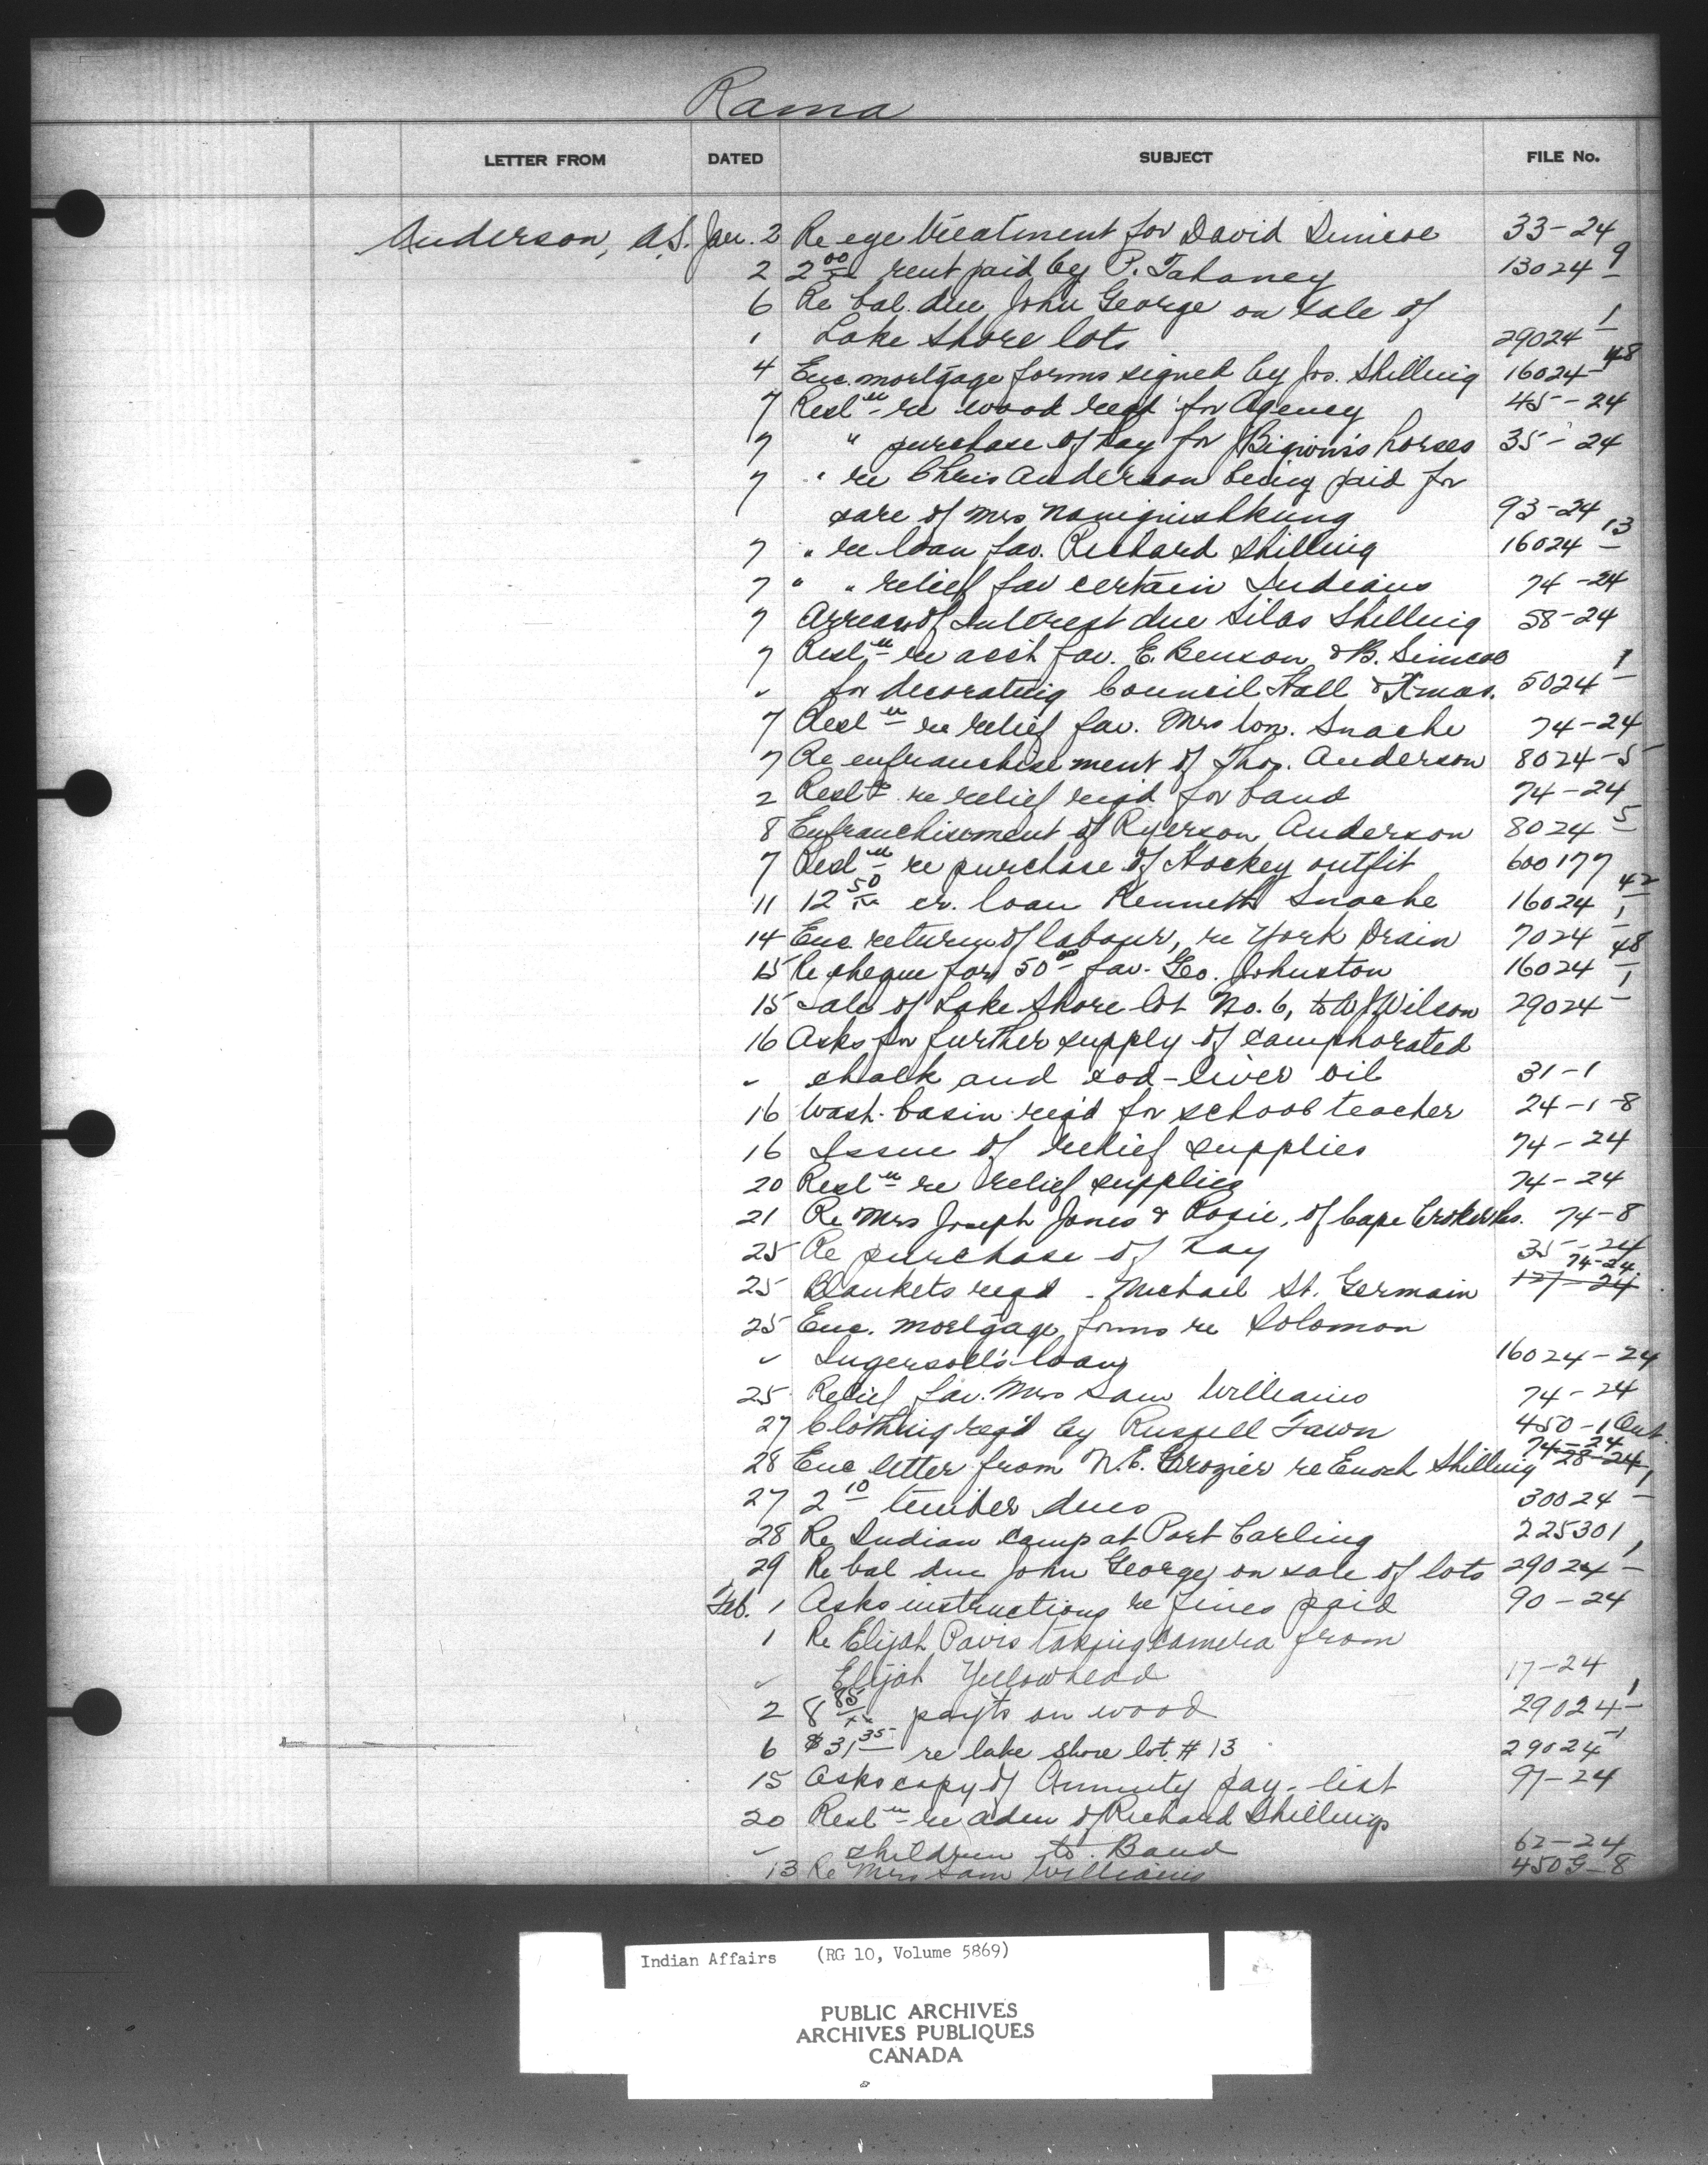 Rama
LETTER FROM DATED SUBJECT FILE No.
Anderson, A.S. Jan. 2 Re eye treatment for David Simcoe 33-24
2 2 00/xx rent paid by P. Tahaney 13024-9
6 Re bal. due John George on sale of
" Lake Shore lots 29024-1
4 Enc. mortgage forms signed by Jos. Shilling 16024-48
7 Resl'n re wood reqd for Agency 45-24
7 " purchase of hay for Bigwin's horses 35-24
7 " re Chris Anderson being paid for
care of Mrs Naningishkung 93-24
7 " re loan fav. Richard Shilling 16024-13
7 " " relief fav certain Indians 74-24
7 Arrears of Interest due Silas Shilling 58-24
7 Resl'n re acct fav. E. Benson & B. Simcoe
" for decorating Council Hall & Xmas. 5024-1
7 Resl'n re relief fav. Mrs Wm. Snache 74-24
7 Re enfranchisement of Thos. Anderson 8024-5
2 Resl'n re relief reqd for band 74-24
8 Enfranchisement of Ryerson Anderson 8024-5
7 Resl'n re purchase of Hockey outfit 600177
11 12 50/xx cr. loan Kenneth Snache 16024-42
14 Enc. return of labour, re York Drain 7024-1
15 Re cheque for 50 00 fav. Geo. Johnston 16024-48
15 Sale of Lake Shore lot No. 6, to W J Wilson 29024-1
16 Asks for further supply of camphorated
" chalk and cod-liver oil 31-1
16 Wash-basin req'd for school teacher 24-1-8
16 Issue of relief supplies 74-24
20 Resl'n re relief supplies 74-24
21 Re Mrs Joseph Jones & Rosie, of Cape Croker Res. 74-8
25 Re purchase of hay 35-24
74-24
25 Blankets reqd - Michael St. Germain 127-24
25 Enc. mortgage forms re Solomon
" Ingersoll's loan 16024-24
25 Relief fav. Mrs Sam Williams 74-24
27 Clothing req'd by Russell Fawn 450-1 Ont.
74-24
28 Enc letter from N.E. Crozier re Enoch Shilling 28-24
27 2 10 timber dues 30024-1
28 Re Indian Camp at Port Carling 225301
29 Re bal due John George on sale of lots 29024-1
Feb. 1 Asks instructions re fines paid 90-24
1 Re Elijah Pavis taking camera from
" Elijah Yellowhead 17-24
2 8 85/xx payts on wood 29024-1
6 $31 35 re lake shore lot # 13 29024-1
15 Asks copy of Annuity pay-list 97-24
20 Resl'n re adm of Richard Shilling's
" children to Band 62-24
13 Re Mrs Sam Williams 450G-8
Indian Affairs (RG 10, Volume 5869)
PUBLIC ARCHIVES
ARCHIVES PUBLIQUES
CANADA